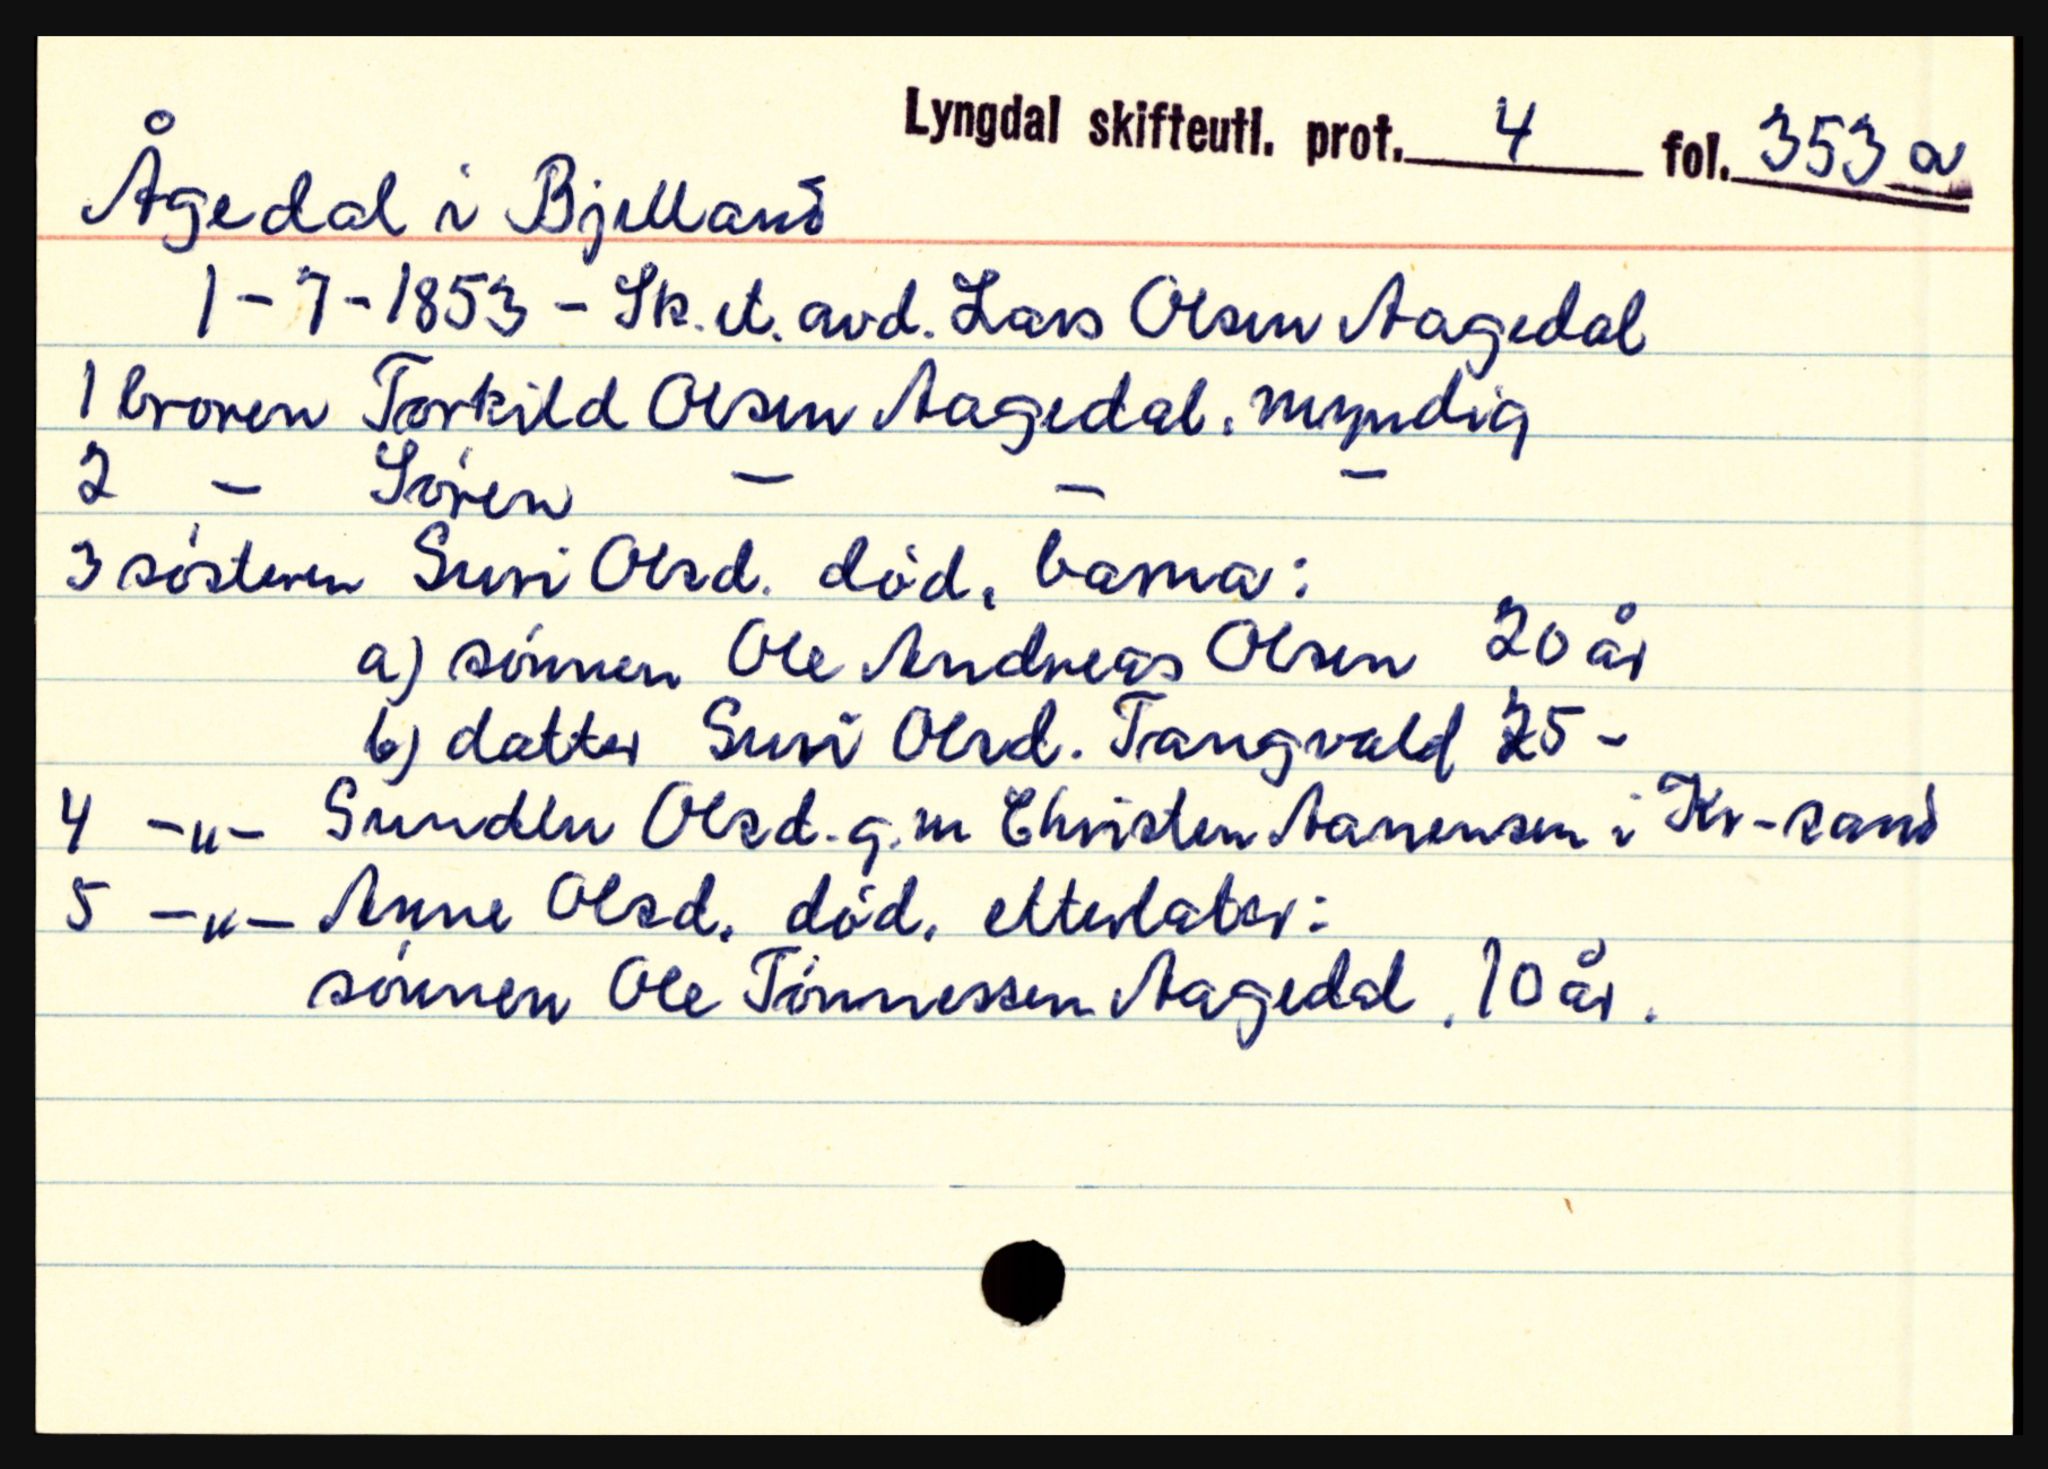 Lyngdal skifteutl. prot. 4 fol. 353 a
Ågedal i Bjelland
1-7-1853 - Sk. et. avd. Lars Olsen Aagedal
1 broren Torkild Olsen Aagedal. myndig
2 - Sören - - -
3 søsteren Suri Olsd. død, barna:
a) sønnen Ole Andreas Olsen 20 år
b) datter Suri Olsd. Tangvald 25 -
4 -"- Gundlu Olsd. g.m Christen Aanensen i Kr-sand
5 -"- Anne Olsd. død. etterlater:
sønnen Ole Tönnessen Aagedal. 10 år.